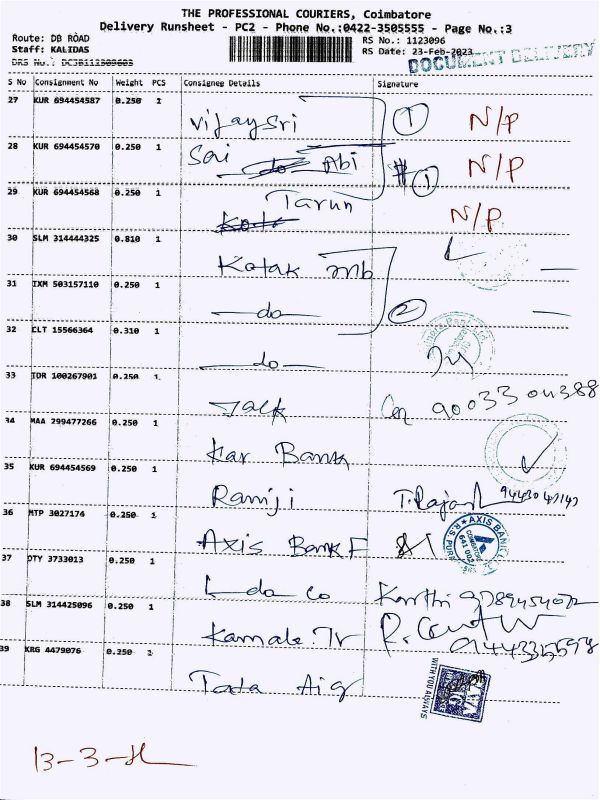 THE PROFESSIONAL COURIERS, Coimbatore
Delivery Runsheet - PC2 - Phone No.:0422-3505555 - Page No.:3
Route: DB ROAD RS No.: 1123096
Staff: KALIDAS RS Date: 23-Feb-2023
DRS No.: DCJB112309603 DOCUMENT DELIVERY
S No Consignment No Weight PCS Consignee Details Signature
27 KUR 694454587 0.250 1
Vijaysri 1 N/P
28 KUR 694454570 0.250 1
Sai do Abi 1 N/P
29 KUR 694454568 0.250 1
Tarun N/P
30 SLM 314444325 0.810 1
Kotak mb
31 IXM 503157110 0.250 1
do 2
32 CLT 15566364 0.310 1
do
33 IDR 100267901 0.250 1
34 MAA 299477266 0.250 1
Kar Bank
35 KUR 694454569 0.250 1
Ramji
36 MTP 3027176 0.250 1
Axis Bank F AXIS BANK
37 OTY 3733013 0.250 1
38 SLM 314425096 0.250 1
Kamala. Tr
39 KRG 4479076 0.250 1
Tata Aig WITH YOU ALWAYS